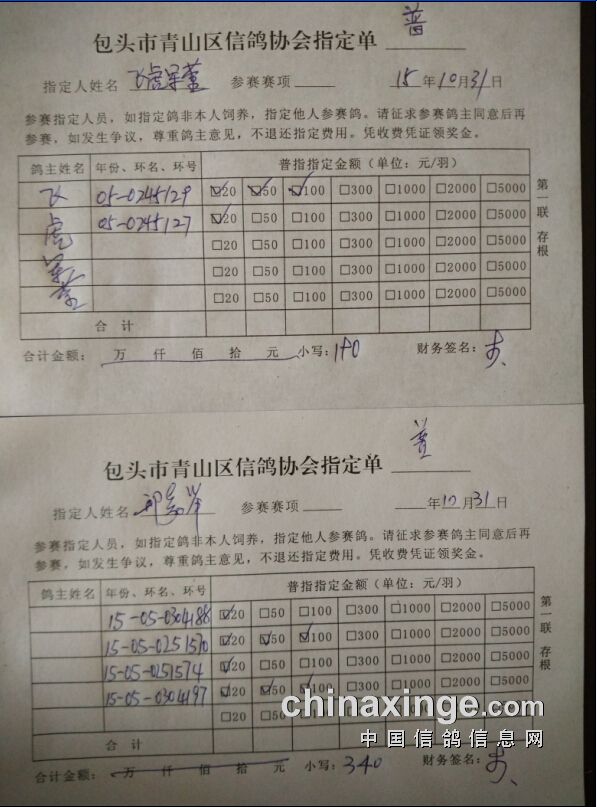 普
包头市青山区信鸽协会指定单
指定人姓名 飞虎军董 参赛赛项 15年10月31日
参赛指定人员，如指定鸽非本人饲养，指定他人参赛鸽。请征求参赛鸽主同意后再
参赛，如发生争议，尊重鸽主意见，不退还指定费用。凭收费凭证领奖金。
鸽主姓名 年份、环名、环号 普指指定金额（单位：元/羽）
飞 05-0245129 ☑20 ☑50 ☑100 □300 □1000 □2000 □5000
虎 05-0245127 ☑20 □50 □100 □300 □1000 □2000 □5000
□20 □50 □100 □300 □1000 □2000 □5000
军 □20 □50 □100 □300 □1000 □2000 □5000
董 □20 □50 □100 □300 □1000 □2000 □5000
合 计
第一联 存根
合计金额： 万 仟 佰 拾 元 小写：190 财务签名：
普
包头市青山区信鸽协会指定单
指定人姓名 参赛赛项 年10月31日
参赛指定人员，如指定鸽非本人饲养，指定他人参赛鸽。请征求参赛鸽主同意后再
参赛，如发生争议，尊重鸽主意见，不退还指定费用。凭收费凭证领奖金。
鸽主姓名 年份、环名、环号 普指指定金额（单位：元/羽）
15-05-0304188 ☑20 □50 □100 □300 □1000 □2000 □5000
15-05-0251570 ☑20 ☑50 ☑100 □300 □1000 □2000 □5000
15-05-0251574 ☑20 □50 □100 □300 □1000 □2000 □5000
15-05-0304197 ☑20 ☑50 ☑100 □300 □1000 □2000 □5000
□20 □50
合 计
第一联 存根
合计金额： 万 仟 佰 拾 元 小写：340 财务签名：
chinaxinge.com
中国信鸽信息网